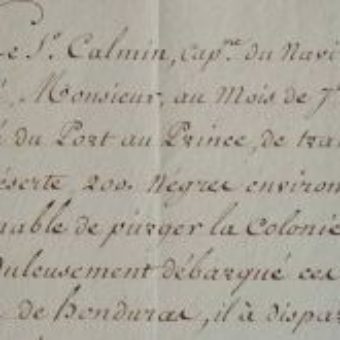 Le Sr. Calmin, capne. du Navi
, Monsieur, au Mois de 7b
du Port au Prince, de tra
éserte, 200. Nègres environ
nable de purger la Colonie
uleusement débarqué ces
de honduras, il à dispar